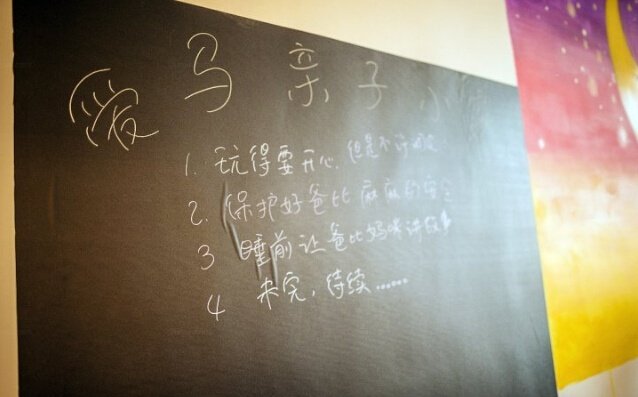 爱马亲子小
1. 玩得要开心, 但是不许
2. 保护好爸比麻麻的安全
3 睡前让爸比妈咪讲故事
4 未完, 待续......